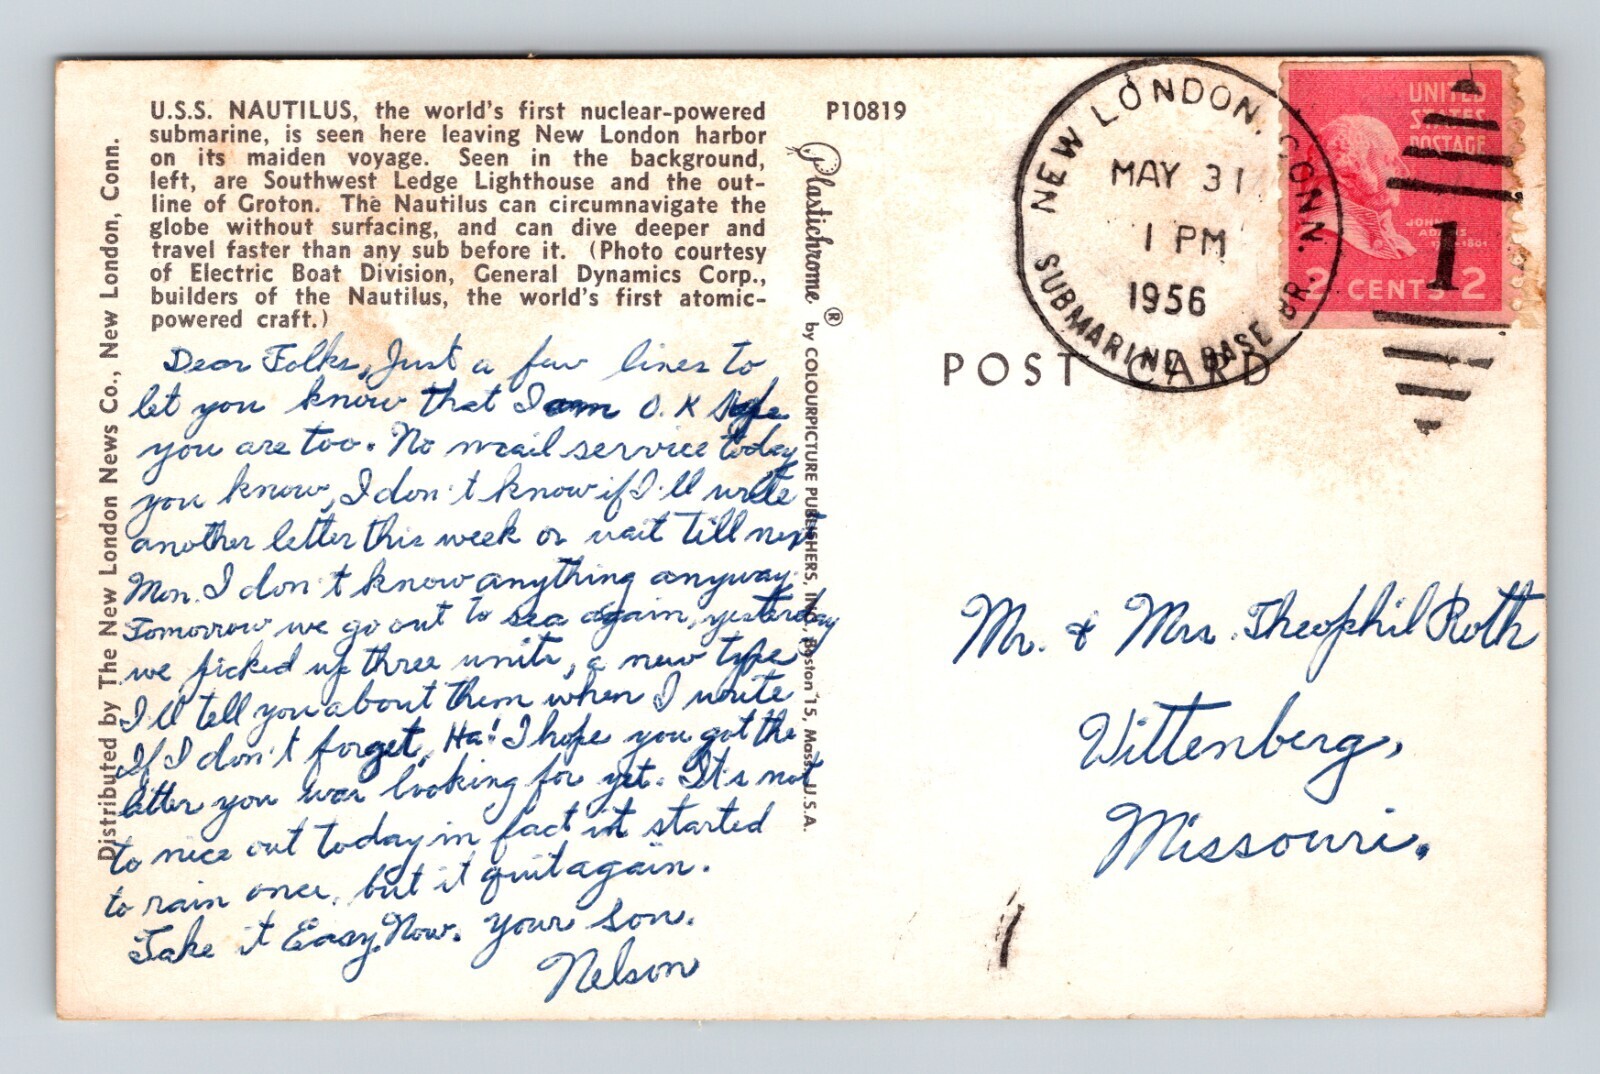 U.S.S. NAUTILUS, the world's first nuclear-powered
submarine, is seen here leaving New London harbor
on its maiden voyage. Seen in the background,
left, are Southwest Ledge Lighthouse and the out-
line of Groton. The Nautilus can circumnavigate the
globe without surfacing, and can dive deeper and
travel faster than any sub before it. (Photo courtesy
of Electric Boat Division, General Dynamics Corp.,
builders of the Nautilus, the world's first atomic-
powered craft.)
Dear Folks, Just a few lines to
let you know that I am O.K hope
you are too. No mail service today
you know, I don't know if I'll write
another letter this week or wait till next
Mon. I don't know anything anyway.
Tomorrow we go out to sea again, yesterday
we picked up three units, a new type
I'll tell you about them when I write
If I don't forget, Ha! I hope you got the
letter you was looking for yet. It's not
to nice out today in fact it started
to rain once, but it quit again.
Take it Easy Now. Your son.
Nelson
Distributed by The New London News Co., New London, Conn.
P10819
Plastichrome ® by COLOURPICTURE PUBLISHERS, INC., Boston 15, Mass., U.S.A.
POST CARD
NEW LONDON, CONN.
MAY 31
1 PM
1956
SUBMARINE BASE BR.
UNITED
STATES
POSTAGE
JOHN
ADAMS
1797-1801
2 CENTS 2
1
Mr. & Mrs. Theophil Roth
Wittenberg,
Missouri.